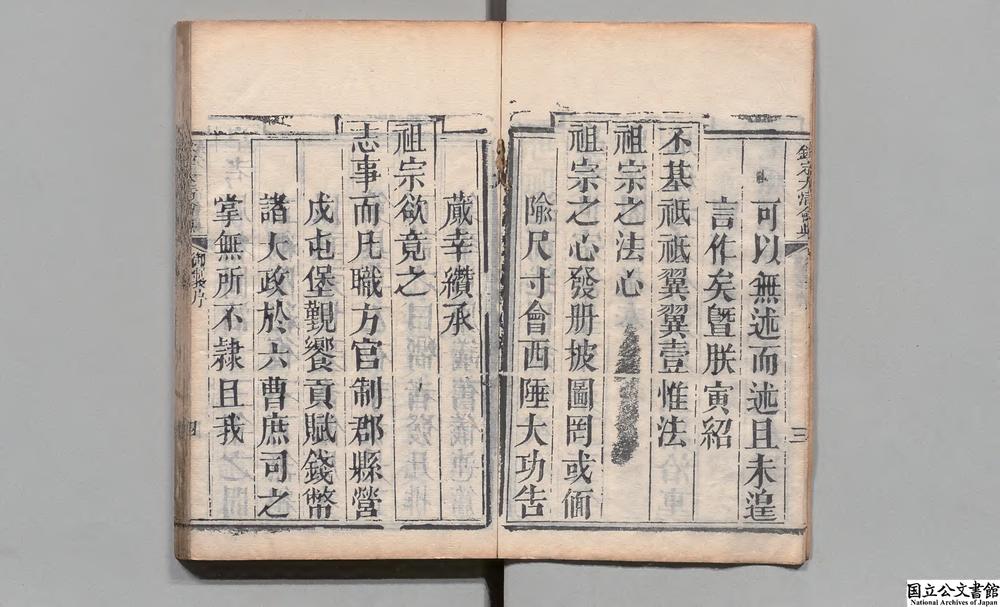 欽定大清會典
三
可以無述而述且未遑
言作矣曁朕寅紹
丕基祗祗翼翼壹惟法
祖宗之法心
祖宗之心發册披圖罔或偭
隃尺寸會西陲大功告
蕆幸纘承
祖宗欲竟之
志事而凡職方官制郡縣營
戍屯堡覲饗貢賦錢幣
諸大政於六曹庶司之
掌無所不隷且我
御製序
四
国立公文書館
National Archives of Japan